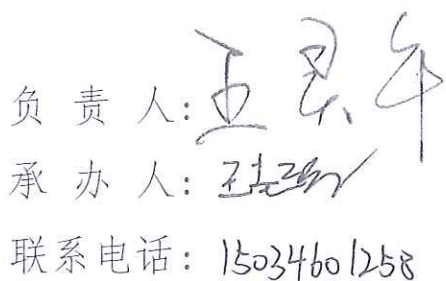 负责人：
承办人：
联系电话：15034601258